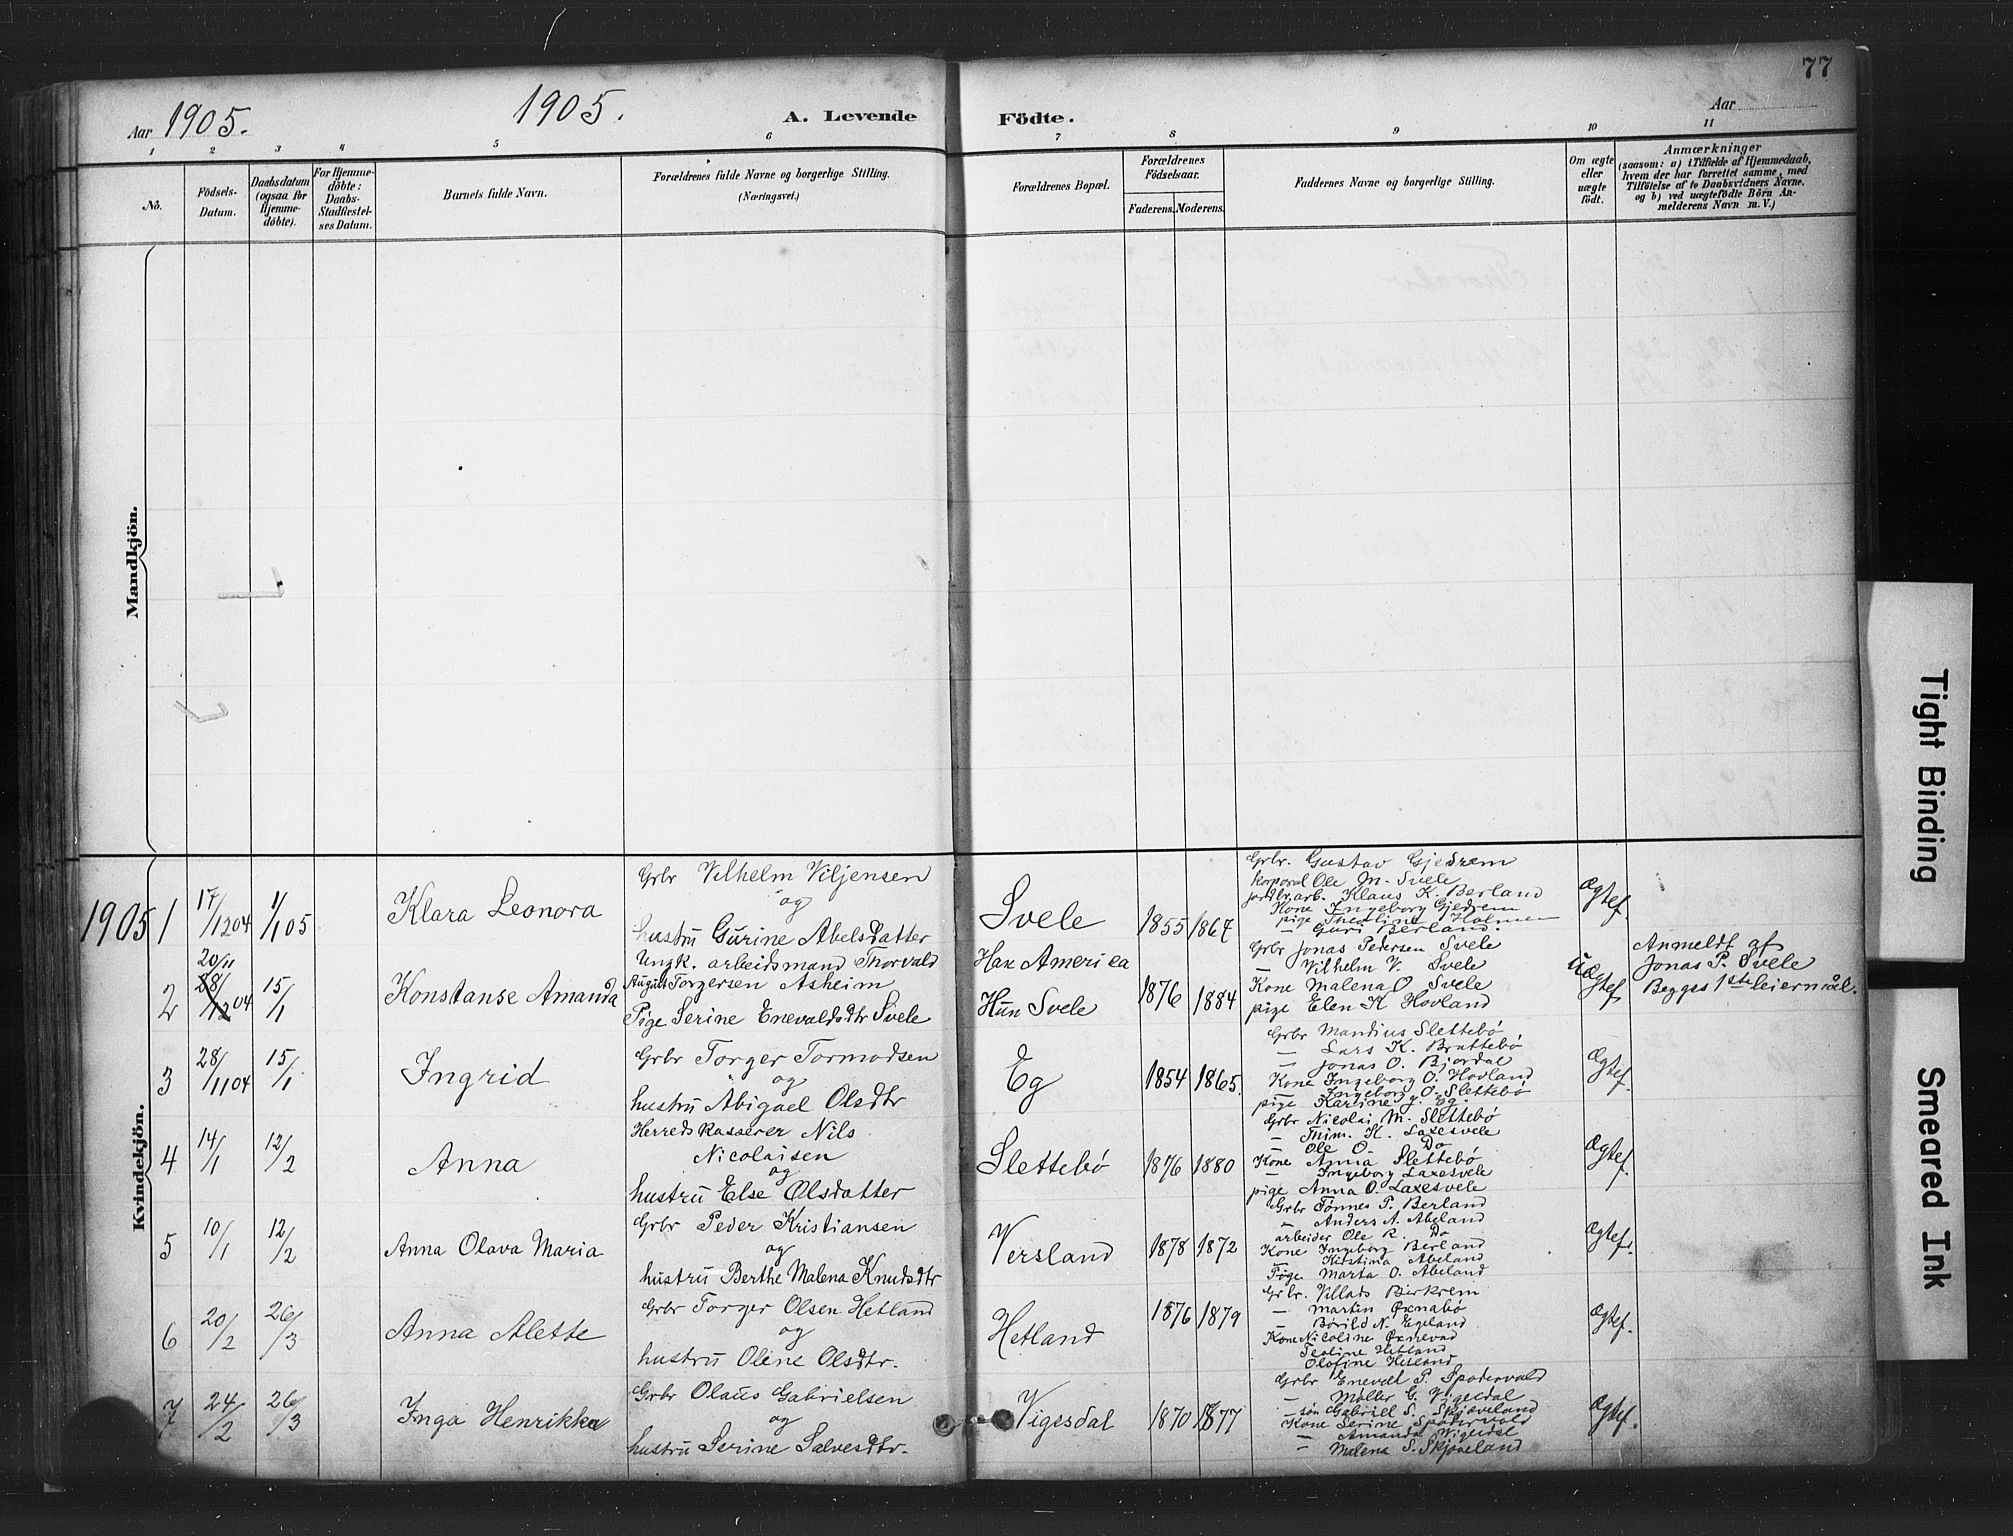 77
Aar 1905.
1905.
A. Levende
Födte.
Aar
1 2 3 4 5 6 7 8 9 10 11
No.
Födsels-Datum.
Daabsdatum (ogsaa for Hjemmedöbte).
For Hjemmedöbte: Daabs-Stadfæstelses Datum.
Barnets fulde Navn.
Forældrenes fulde Navne og borgerlige Stilling.
(Næringsvei.)
Forældrenes Bopæl.
Forældrenes Födselsaar.
Faderens. Moderens.
Faddernes Navne og borgerlige Stilling.
Om ægte eller uægte födt.
Anmærkninger
(saasom: a) i Tilfælde af Hjemmedaab,
hvem der har forrettet samme, med
Tilföielse af to Daabsvidners Navne,
og b) ved uægtefödte Börn An-
melderens Navn m. V.)
Mandkjön.
Kvindekjön.
1905 1 17/12 04 1/1 05 Klara Leonora
Grbr Vilhelm Viljensen
og
hustru Gurine Abelsdatter
Svele 1855 1864
Grbr. Gustav Gjedrem
korporal Ole M. Svele
jordbr.arb. Klaus K. Berland
Kone Ingeborg Gjedrem
pige Theoline Holmen
— Guri Berland.
Ægtef.
2 20/11 28/12 04 15/1 Konstanse Amanda
Ungk. arbeidsmand Thorvald
August Torgersen Asheim
og
Pige Serine Enevaldsdtr Svele
Han America
Hun Svele
1876 1884
Grbr Jonas Pedersen Svele
— Vilhelm V. Svele
Kone Malena O Svele
pige Elen K Hovland
Uægtef
Anmeldt af
Jonas P. Svele
Begges 1ste leiermål.
3 28/11 04 15/1 Ingrid
Grbr Torger Tormodsen
og
hustru Abigael Olsdtr
Eg 1854 1865.
Grbr Mandius Slettebö
— Lars K. Brattebö
— Jonas O. Bjordal
Kone Ingeborg O. Hovland
— Ingeborg O. Slettebö
pige Karine J. Eg.
Ægtef.
4 14/1 12/2 Anna
Herredskasserer Nils
Nicolaisen
og
hustru Else Olsdatter
Slettebö 1876 1880
Grbr Nicolai M. Slettebö
— Thim. K. Laxesvele
— Ole O. Do
Kone Anna Slettebö
— Ingeborg Laxesvele
pige Anna O. Laxesvele
Ægtef.
5 10/1 12/2 Anna Olava Maria
Grbr Peder Kristiansen
og
hustru Berthe Malena Knudsdtr
Versland 1878 1872
Grbr Tönnes P. Berland
" Anders A. Abeland
arbeider Ole R. Do
Kone Ingeborg Berland
— Kirstina Abeland
Pige Marta O. Abeland
Ægtef.
6 20/2 26/3 Anna Alette
Grbr Torger Olsen Hetland
og
hustru Oline Olsdtr.
Hetland 1876 1879
Grbr. Villads Birkrem
— Martin Øxnabö
— Börild N. Egeland
Kone Nicoline Øxnevad
Teoline Hetland
Olofine Hetland
Ægtef.
7 24/2 26/3 Inga Henrikka
Grbr Olaus Gabrielsen
og
hustru Serine Salvesdtr.
Vigesdal 1870 1877
Grbr Enevell P. Spodervold
— Möller G. Vigesdal
— sön Gabriell S. Skjæveland
Kone Serine Spodervold
— Amanda Vigesdal
— Malena S. Skjæveland
Ægtef.
Tight Binding
Smeared Ink